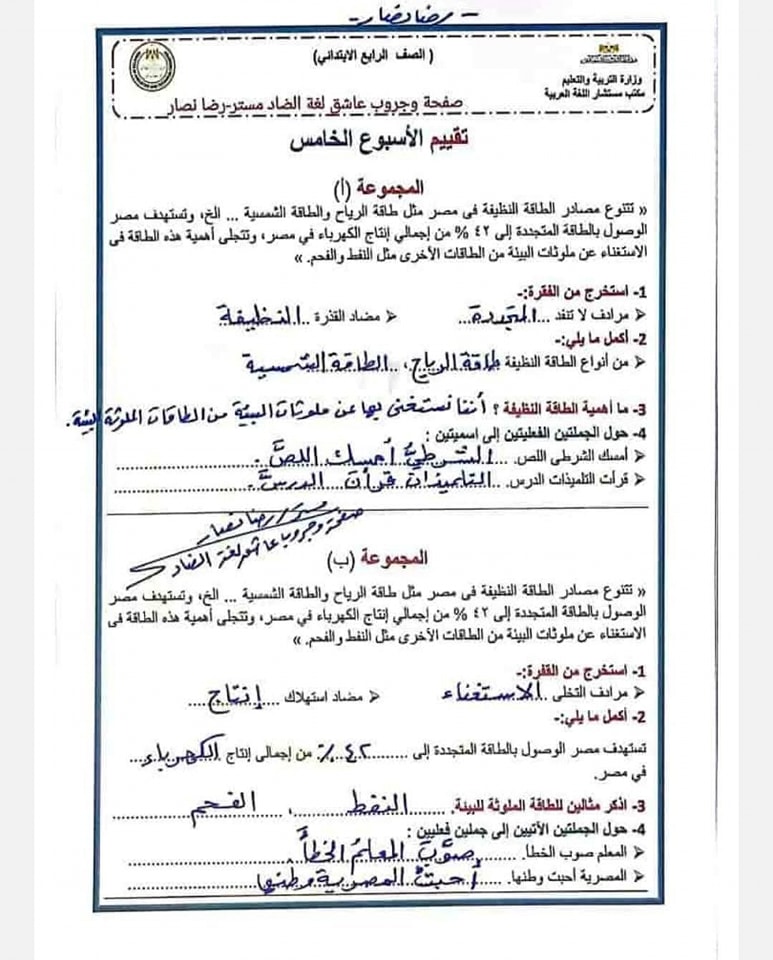 - رضا نصار -
( الصف الرابع الابتدائي)
وزارة التربية والتعليم
مكتب مستشار اللغة العربية
صفحة وجروب عاشق لغة الضاد مستر-رضا نصار
تقييم الأسبوع الخامس
المجموعة (أ)
« تتنوع مصادر الطاقة النظيفة فى مصر مثل طاقة الرياح والطاقة الشمسية ... الخ، وتستهدف مصر
الوصول بالطاقة المتجددة إلى ٤٢ % من إجمالي إنتاج الكهرباء في مصر، وتتجلى أهمية هذه الطاقة فى
الاستغناء عن ملوثات البيئة من الطاقات الأخرى مثل النفط والفحم. »
1- استخرج من الفقرة:-
مرادف لا تنفد ...المتجددة... مضاد القذرة ..النظيفة
2- أكمل ما يلي:-
من أنواع الطاقة النظيفة طاقة الرياح، ..الطاقة الشمسية
3- ما أهمية الطاقة النظيفة ؟ أننا نستغنى بها عن ملوثات البيئة من الطاقات الملوثة للبيئة.
4- حول الجملتين الفعليتين إلى اسميتين :
أمسك الشرطى اللص. ..الشرطيُّ أمسك اللصَّ.
قرأت التلميذات الدرس. ..التلميذات قرأن الدرسَ.
مستر/ رضا نصار
صفحة وجروب عاشق لغة الضاد
المجموعة (ب)
« تتنوع مصادر الطاقة النظيفة فى مصر مثل طاقة الرياح والطاقة الشمسية ... الخ، وتستهدف مصر
الوصول بالطاقة المتجددة إلى ٤٢ % من إجمالي إنتاج الكهرباء في مصر، وتتجلى أهمية هذه الطاقة فى
الاستغناء عن ملوثات البيئة من الطاقات الأخرى مثل النفط والفحم. »
1- استخرج من الفقرة:-
مرادف التخلى ..الاستغناء مضاد استهلاك ...إنتاج...
2- أكمل ما يلي:-
تستهدف مصر الوصول بالطاقة المتجددة إلى ...٤٢ %.. من إجمالى إنتاج الكهرباء...
في مصر.
3- اذكر مثالين للطاقة الملوثة للبيئة. ...النفط...، ...الفحم...
4- حول الجملتين الآتيين إلى جملين فعليين :
المعلم صوب الخطأ. ...صوَّبَ المعلمُ الخطأَ.
المصرية أحبت وطنها. ...أحبتْ المصرية وطنها